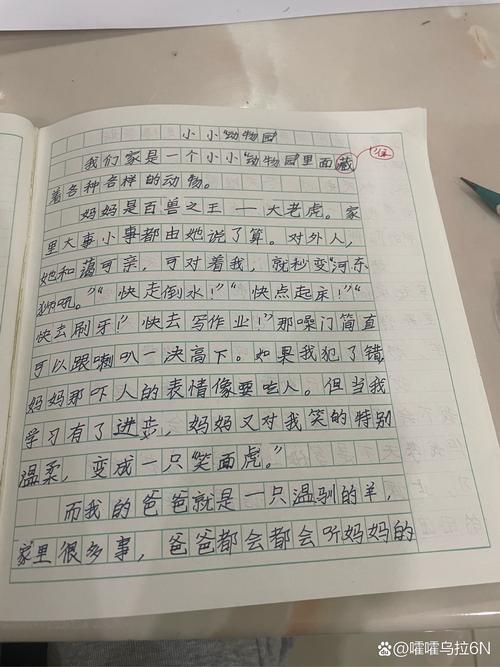 小小“动物园”
我们家是一个小小“动物园”里面藏
住
着各种各样的动物。
妈妈是百兽之王——大老虎。家
里大事小事都由她说了算。对外人，
她和蔼可亲，可对着我，就秒变“河东
狮吼。”“快走倒水！”“快点起床！”“
快去刷牙！”快去写作业！”那嗓门简直
可以跟喇叭一决高下。如果我犯了错
妈妈那吓人的表情像要吃人。但当我
学习有了进步，妈妈又对我笑的特别
温柔，变成一只“笑面虎。”
而我的爸爸就是一只温驯的羊，
家里很多事，爸爸都会都会听妈妈的
@嚯嚯乌拉6N